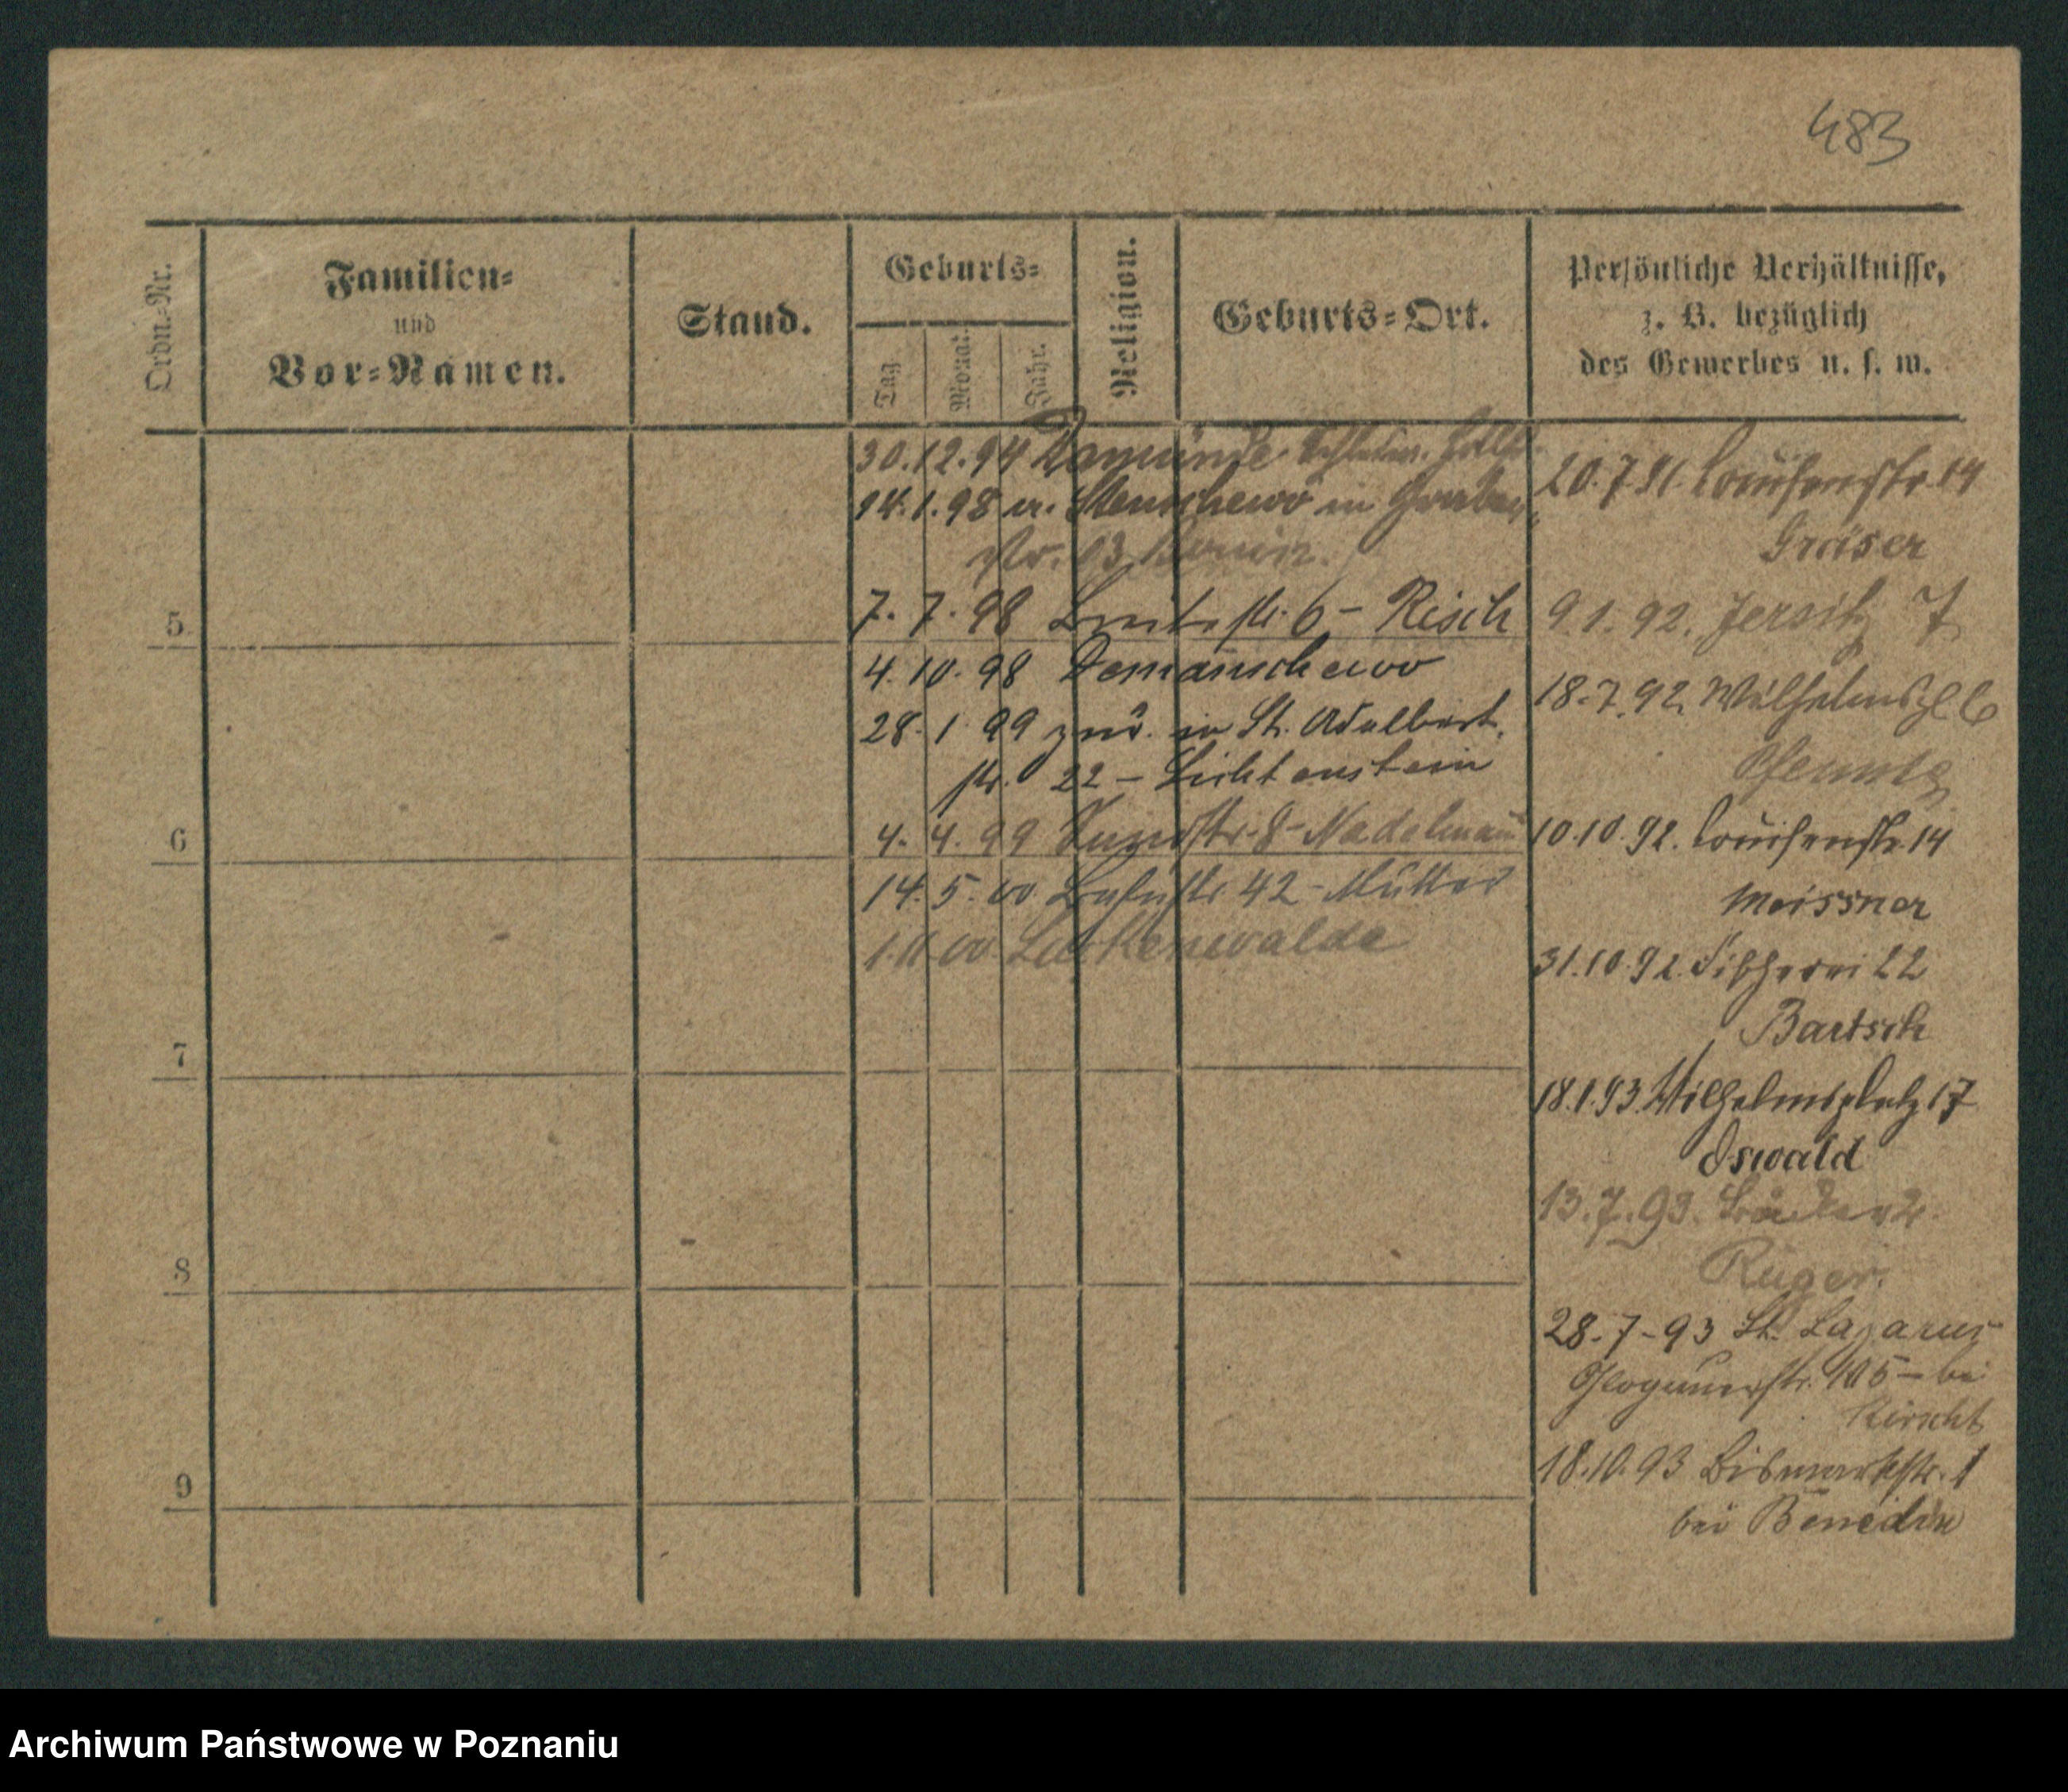 483
Ordn.-Nr.
Familien-
und
Vor-Namen.
Stand.
Geburts-
Tag
Monat.
Jahr.
Religion.
Geburts-Ort.
Persönliche Verhältnisse,
z. B. bezüglich
des Gewerbes u. s. w.
30.12.94
14.1.98 in Graben
Nr. 13
5
7. 7. 98 str. 6 - Risch
4. 10. 98
28. 1 99 znr. in St. Adalbert
str. 22 - Lichtenstein
6
4. 4. 99 8 - Nadelmann
14. 5. 00 42 -
1.11.00 Luckenwalde
7
8
9
20.7.91. Louisenstr. 14
Gräser
9.1.92. Jersitz 7
18.7.92. Wilhelmspl 6
Pfennig
10.10.92. Louisenstr. 14
Meissner
31.10.92. Fischerei 22
Bartsch
18.1.93. Wilhelmsplatz 17
Oswald
13.7.93.
Ruger.
28-7-93 St. Lazarus
Glogauerstr. 105 - bei
18.10.93 Bismarkstr. 1
bei Benedix
Archiwum Państwowe w Poznaniu